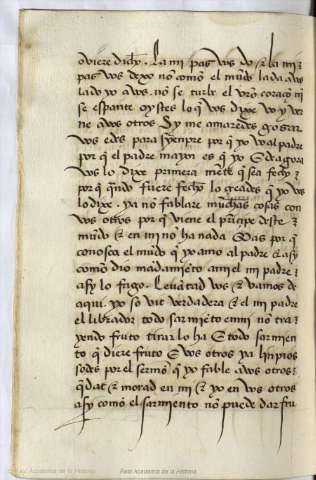 oviere dicho. La mi pas vos do & la mi
pas vos dexo no como el mundo la da a vos
la do yo a vos. no se turbe el vro coraçon ni
se espante oystes lo q̃ vos dixe vo y ver
ne a vos otros Sy me amaredes gosar
vos edes para syenpre por q̃ yo vo al padre
por q̃ el padre mayor es q̃ yo E agora
vos lo dixe primera mẽte q̃ sea fecho
por q̃ quãdo fuere fecho lo creades q̃ yo vos
lo dixe. ya nõ fablare muchas cosas con
vos otros por q̃ viene el prinçipe deste
mundo & en mi nõ ha nada Mas por q̃
conosca el mundo q̃ yo amo al padre & asy
como dio mãdamiẽto a mi el mi padre
asy lo fago. Levãtad vos & vamos de
aqui. yo so vit verdadera & el mi padre
el librador todo sarmiẽto en mi nõ tra
yendo fruto tirar lo ha E todo sarmien
to q̃ diere fruto E vos otros ya linpios
sodes por el sermõ q̃ yo fable a vos otros
q̃dat & morad en mi & yo en vos otros
asy como el sarmiento nõ puede dar fru
Real Academia de la Historia
Real Academia de la Historia